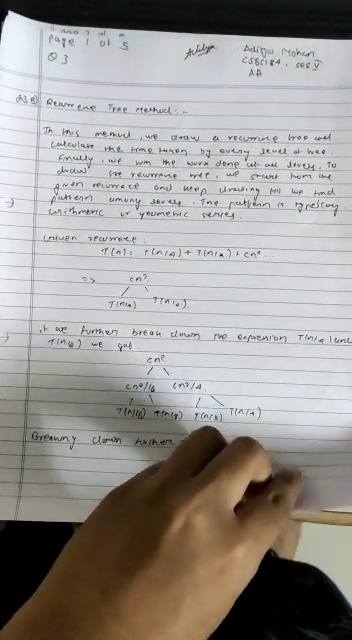 Page 1 of 5
Q 3
Aditya Mohan
CSE
AA
Recurrence Tree Method:-
In this method, we draw a recurrence tree and
calculate the time taken by every level of tree.
Finally, we sum the work done at all levels. To
draw the recurrence tree, we start from the
given recurrence and keep drawing till we find
pattern among levels. The pattern is typically
arithmetic or geometric series.
Given recurrence:
T(n) = T(n/4) + T(n/2) + cn²
=> cn²
T(n/4) T(n/2).
If we further break down the expression T(n/4) and
T(n/2) we get.
cn²
cn²/16 cn²/4.
T(n/16) T(n/8) T(n/8) T(n/4)
Breaking down further